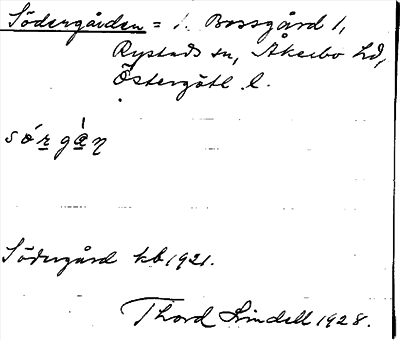 Södergården = 1. Bossgård 1,
Rystads sn, Åkerbo hd,
Östergötl. l.
sörgån
Södergård kb 1921.
Thord Lindell 1928.